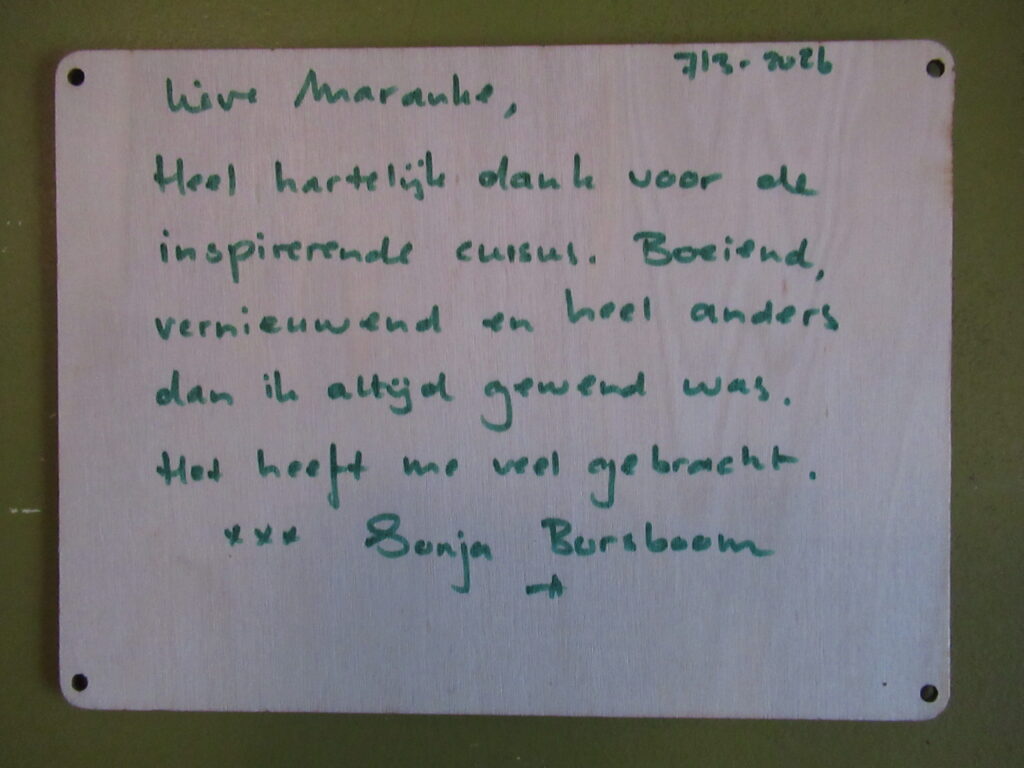 7/3-2026
Lieve Maranke,
Heel hartelijk dank voor de
inspirerende cursus. Boeiend,
vernieuwend en heel anders
dan ik altijd gewend was.
Het heeft me veel gebracht.
*** Sonja Borsboom
→